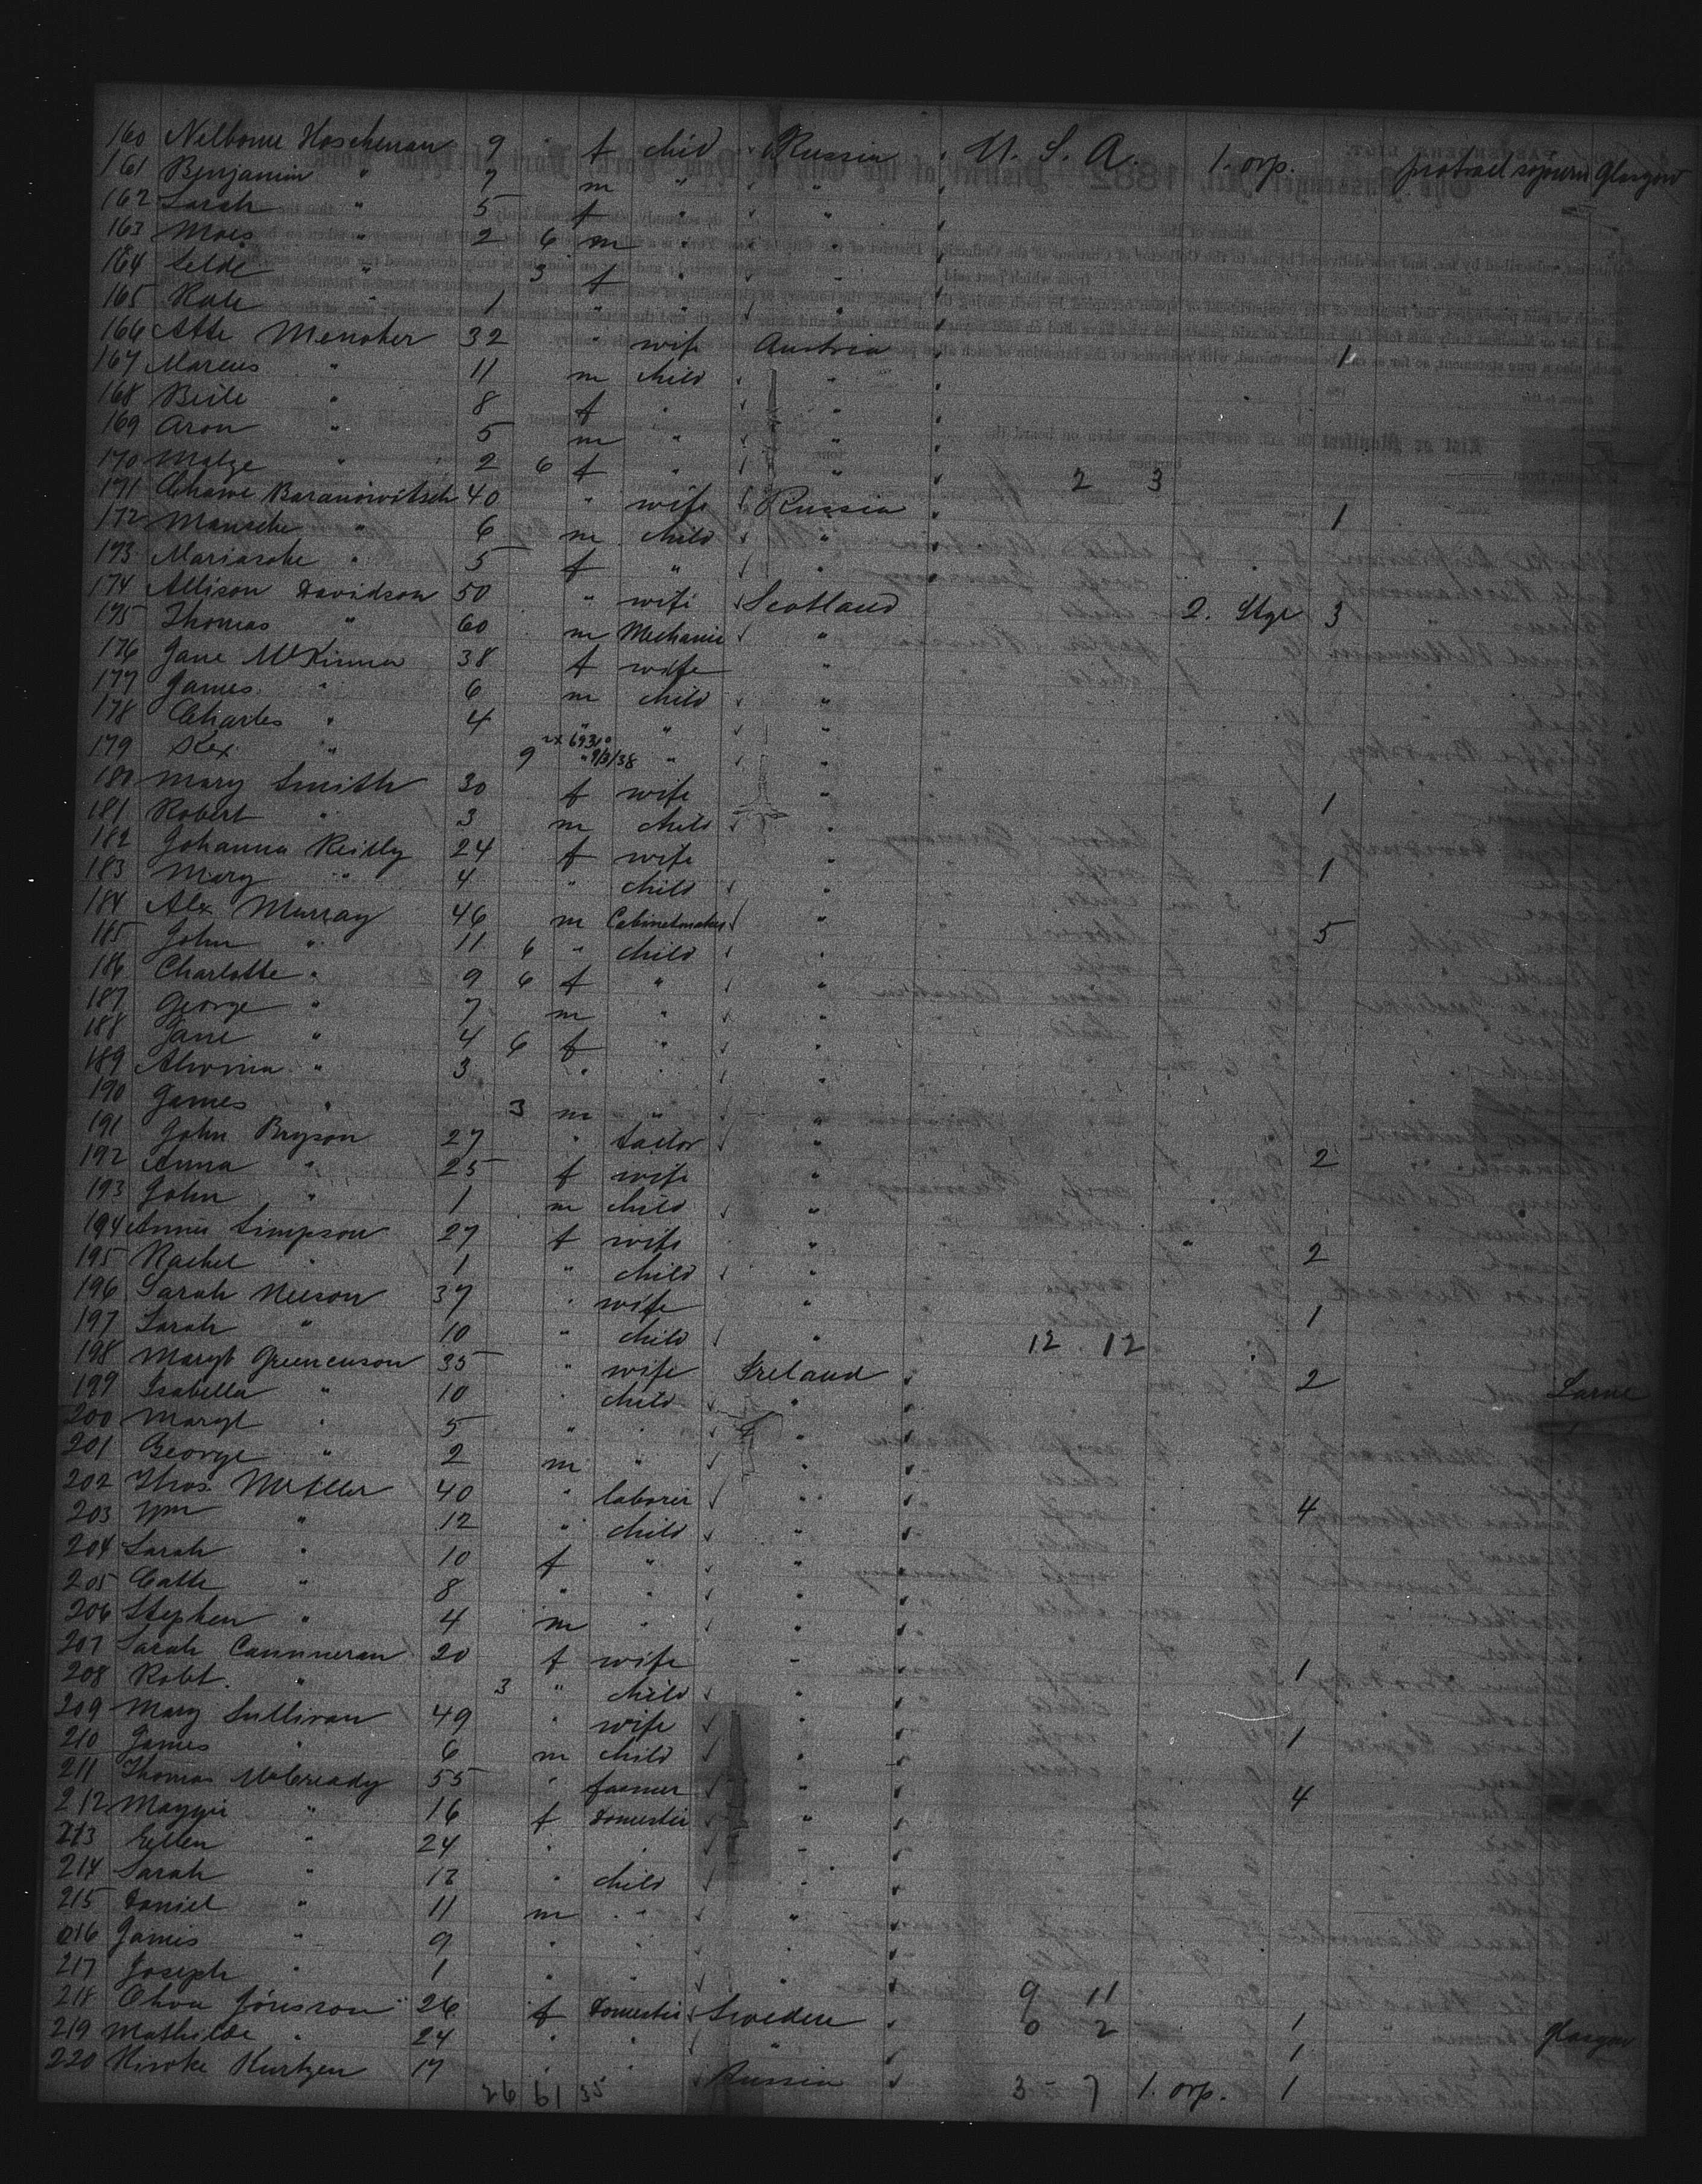 160 Nelbome Hoschenan 9 f child Russia U. S. A. 1. orp. protract sojourn Glasgow
161 Benjamin " 7 m " "
162 Sarah " 5 f " "
163 Moes " 2 6 m " "
164 Selde " 3 f " "
165 Rale " 1 " " "
166 Atte Menoker 32 " wife Austria 1
167 Marcus " 11 m child "
168 Beile " 8 f " "
169 Aron " 5 m " "
170 Malze " 2 6 f " " 2 3
171 Chawe Baranowitsch 40 " wife Russia 1
172 Mansche " 6 m child "
173 Mariasche " 5 f " "
174 Allison Davidson 50 " wife Scotland 2. Stge 3
175 Thomas " 60 m Mechanic "
176 Jane McKinnon 38 f wife "
177 James " 6 m child "
178 Charles " 4 " " "
179 Alex " 9 " 9/3/38 " "
180 Mary Smith 30 f wife " 1
181 Robert " 3 m child "
182 Johanna Reidly 24 f wife " 1
183 Mary " 4 " child "
184 Alex Murray 46 m Cabinetmaker " 5
185 John " 11 6 " child "
186 Charlotte " 9 6 f " "
187 George " 7 m " "
188 Jane " 4 6 f " "
189 Alwina " 3 " " "
190 James " 3 m " "
191 John Bryson 27 " tailor " 2
192 Anna " 25 f wife "
193 John " 1 m child "
194 Annie Simpson 27 f wife " 2
195 Rachel " 1 " child "
196 Sarah Neeson 37 " wife " 1
197 Sarah " 10 " child " 12 12
198 Margt Greencuson 35 " wife Ireland 2 Larne
199 Isabella " 10 " child "
200 Margt " 5 " " "
201 George " 2 m " "
202 Thos McAller 40 " laborer " 4
203 Wm " 12 " child "
204 Sarah " 10 f " "
205 Cath " 8 " " "
206 Stephen " 4 m " "
207 Sarah Cannneran 20 f wife " 1
208 Robt. " 3 " child "
209 Mary Sullivan 49 " wife " 1
210 James " 6 m child "
211 Thomas McCready 55 " farmer " 4
212 Maggie " 16 f Domestic "
213 Ellen " 24 " " "
214 Sarah " 12 " child "
215 Daniel " 11 m " "
216 James " 9 " " "
217 Joseph " 1 " " " 9 11
218 Olivia Jönsson 26 f Domestic Sweden 0 2 1 Glasgow
219 Mathilde " 24 " " " 1
220 Kiwke Kurtzen 17 " " Russia 3 - 7 1. orp. 1
26 61 35